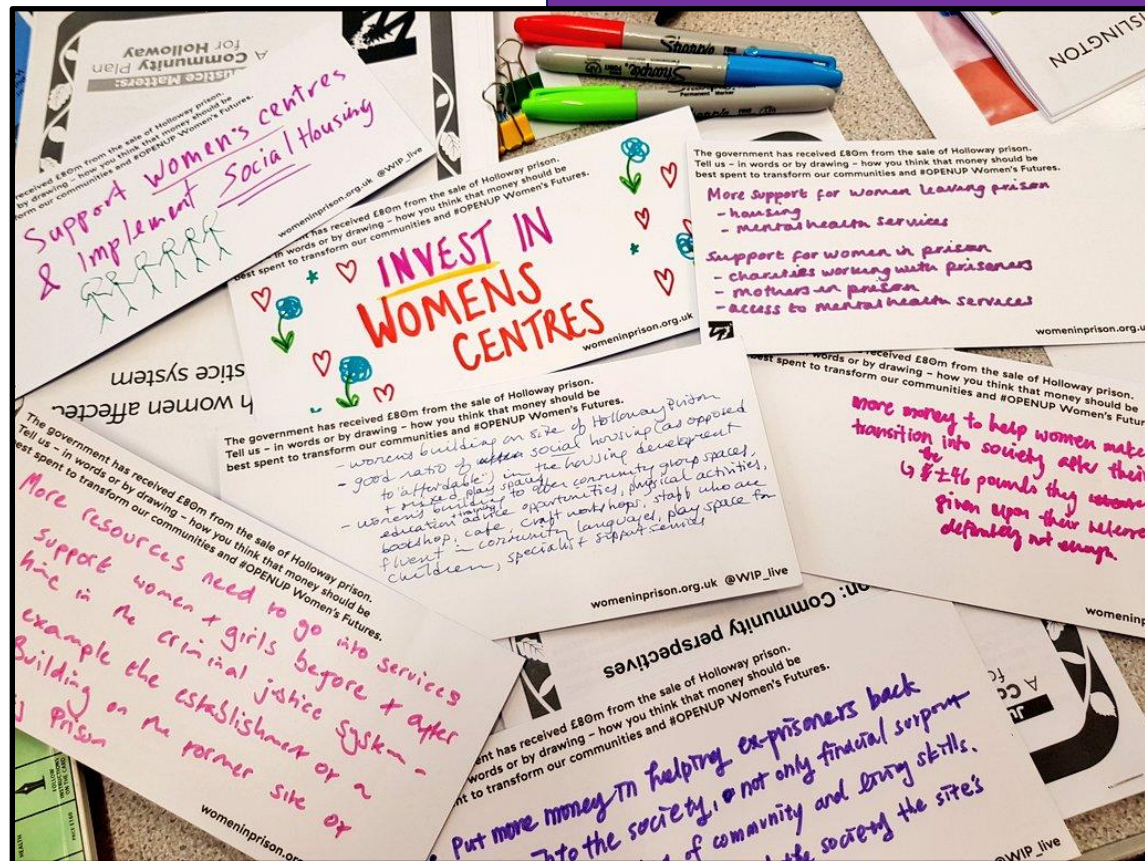 Justice Matters:
A Community Plan
for Holloway
received £80m from the sale of Holloway prison.
by drawing – how you think that money should be
form our communities and #OPENUP Women's Futures.
Support women's centres
& Implement Social Housing
womeninprison.org.uk @WIP_live
Sharpie
ISLINGTON
has received £80m from the sale of Holloway prison.
in words or by drawing – how you think that money should be
best spent to transform our communities and #OPENUP Women's Futures.
INVEST IN
WOMENS
CENTRES
womeninprison.org.uk
The government has received £80m from the sale of Holloway prison.
Tell us – in words or by drawing – how you think that money should be
best spent to transform our communities and #OPENUP Women's Futures.
More support for women leaving prison
- housing
- mental health services
Support for women in prison
- charities working with prisoners
- mothers in prison
- access to mental health services
womeninprison.org.u
h women affected
stice system
The government has received £80m from the sale of Holloway prison.
Tell us – in words or by drawing – how you think that money should be
best spent to transform our communities and #OPENUP Women's Futures.
- women's building on site of Holloway Prison
- good ratio of social housing (as opposed
to 'affordable') in the housing development
+ mixed play spaces
- women's building to offer community group spaces,
education + training, advice opportunities, physical activities,
bookshop, cafe, craft workshops, staff who are
fluent in community languages, play space for
children, specialist support services
womeninprison.org.uk @WIP_live
received £80m from the sale of Holloway prison.
words or by drawing – how you think that money should be
est spent to transform our communities and #OPENUP Women's Futur
more money to help women make
transition into society after their
↳ the £46 pounds they
given upon their release
definitely not enough.
womeninp
The government has received £80m from the sale of Holloway prison.
Tell us – in words or by drawing – how you think that money should be
best spent to transform our communities and #OPENUP Women's Futures.
More resources need to go into services
support women + girls before + after
time in the criminal justice system -
example the establishment of a
Building on the former site of
Prison
womeninprison.org
on: Community perspectives
ent has received £80m from the sale of Holloway prison.
words or by drawing – how you think that money should be
nt to transform our communities and #OPENUP Women's Futures.
Put more money in helping ex-prisoners back
into the society, not only financial support
of community and living skills.
the society the site's
@WIP_live
FOLLOW
INSTRUCTIONS
ON THE CARD